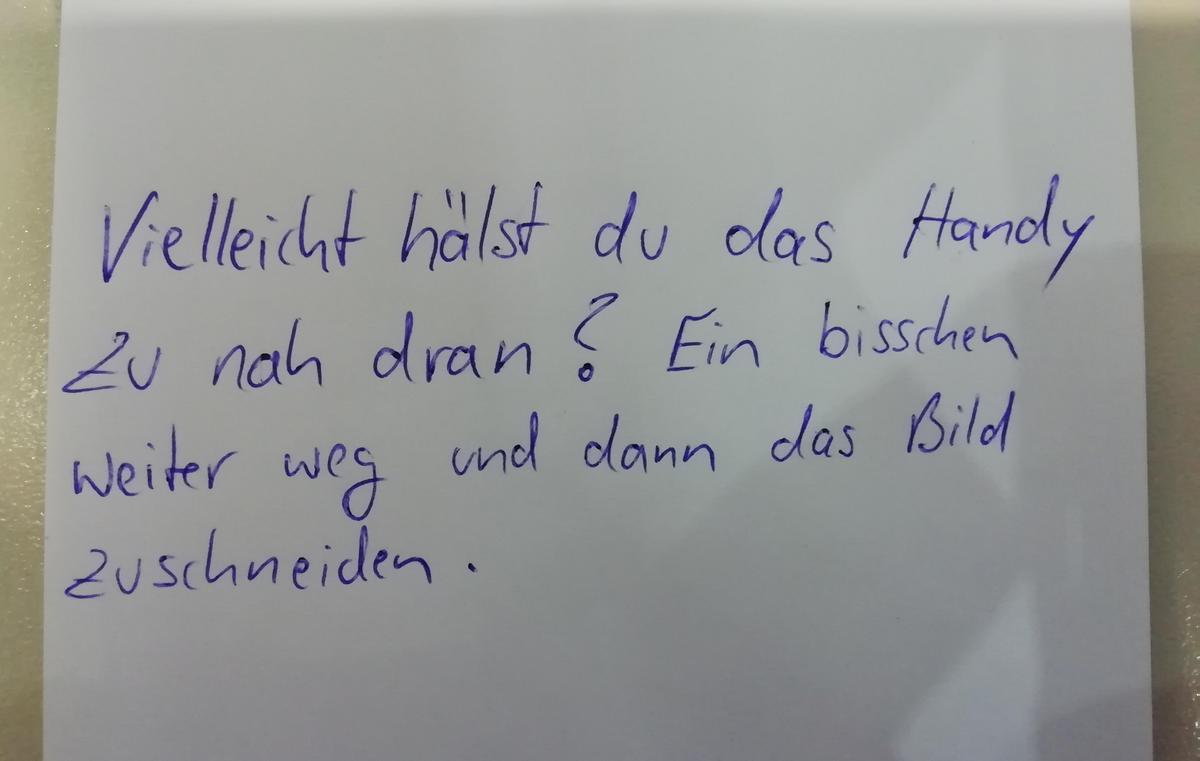 Vielleicht hälst du das Handy
zu nah dran? Ein bisschen
weiter weg und dann das Bild
zuschneiden.